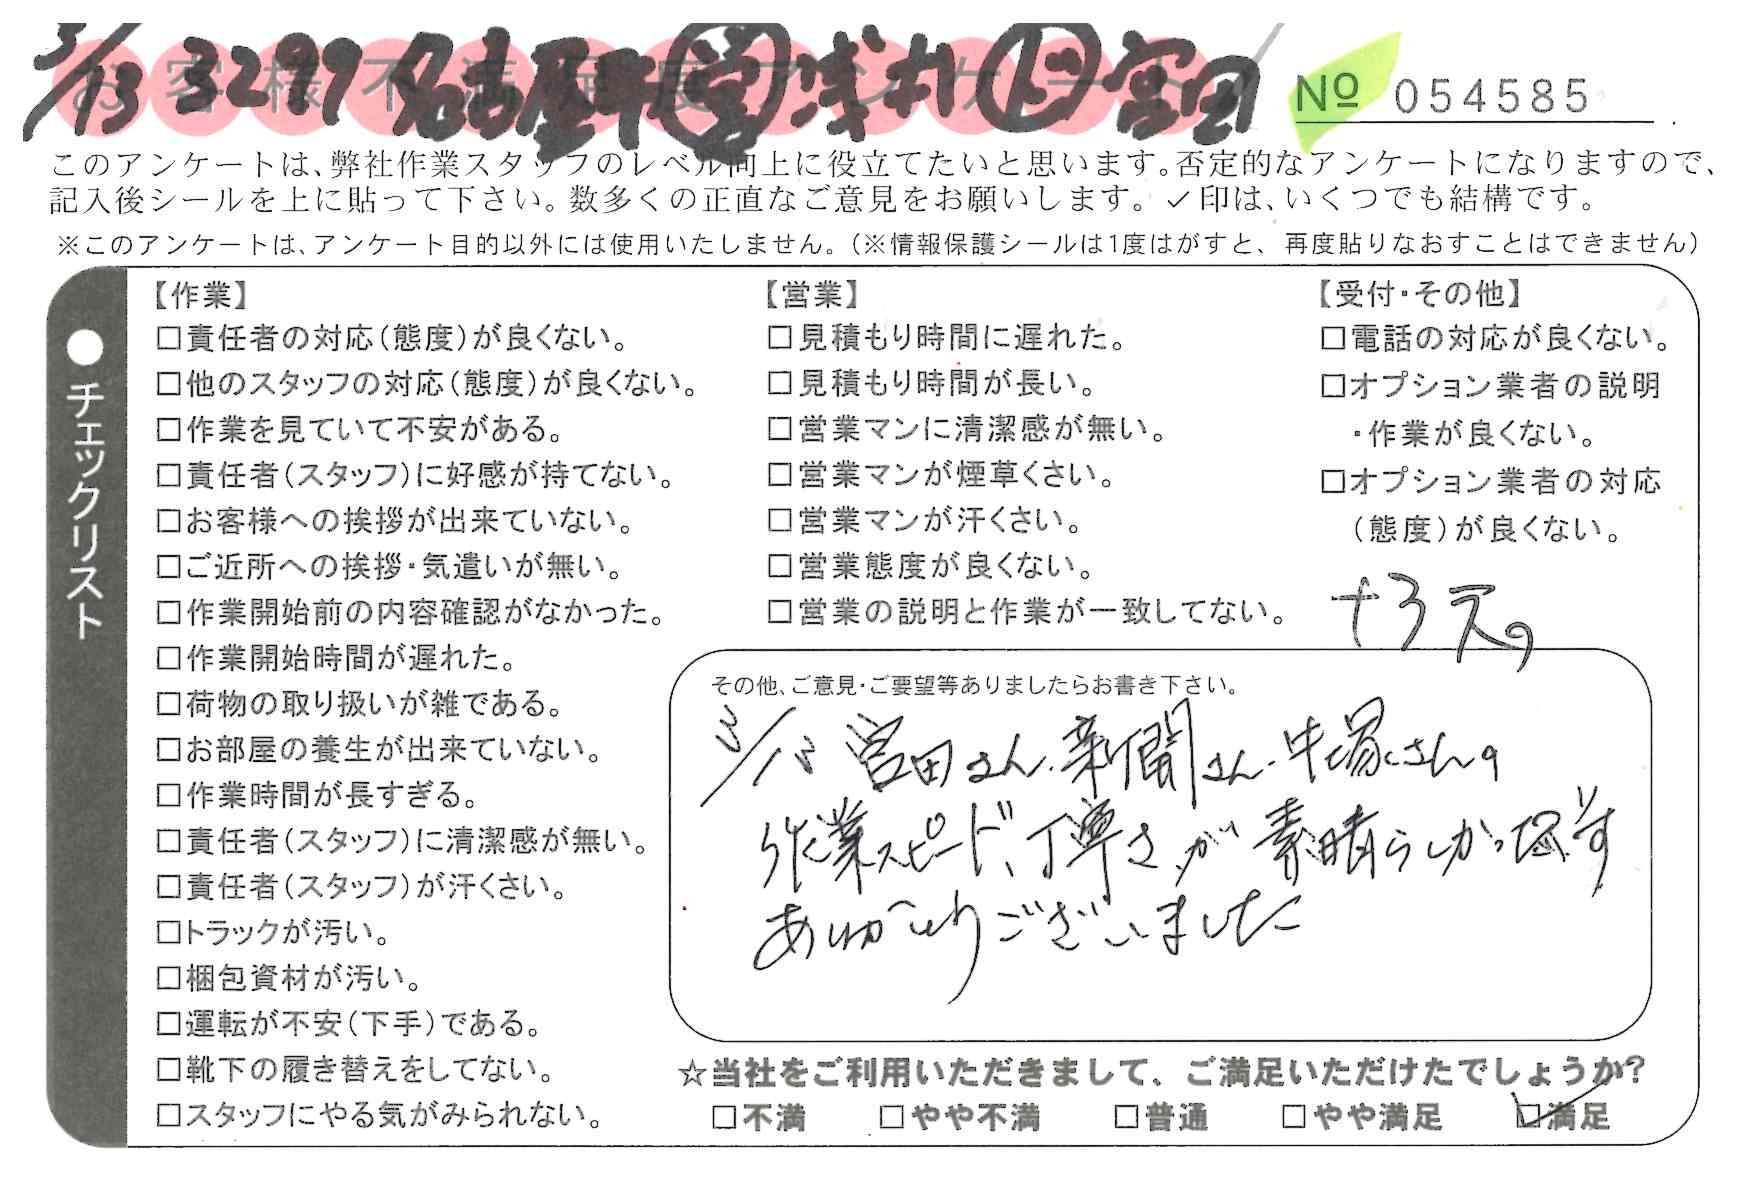 3/13 3299 名古屋 営 浅村 ト 宮田
お客様不満足度アンケート
№ 054585
このアンケートは、弊社作業スタッフのレベル向上に役立てたいと思います。否定的なアンケートになりますので、
記入後シールを上に貼って下さい。数多くの正直なご意見をお願いします。✓印は、いくつでも結構です。
※このアンケートは、アンケート目的以外には使用いたしません。（※情報保護シールは1度はがすと、再度貼りなおすことはできません）
●チェックリスト
【作業】
□責任者の対応（態度）が良くない。
□他のスタッフの対応（態度）が良くない。
□作業を見ていて不安がある。
□責任者（スタッフ）に好感が持てない。
□お客様への挨拶が出来ていない。
□ご近所への挨拶・気遣いが無い。
□作業開始前の内容確認がなかった。
□作業開始時間が遅れた。
□荷物の取り扱いが雑である。
□お部屋の養生が出来ていない。
□作業時間が長すぎる。
□責任者（スタッフ）に清潔感が無い。
□責任者（スタッフ）が汗くさい。
□トラックが汚い。
□梱包資材が汚い。
□運転が不安（下手）である。
□靴下の履き替えをしてない。
□スタッフにやる気がみられない。
【営業】
□見積もり時間に遅れた。
□見積もり時間が長い。
□営業マンに清潔感が無い。
□営業マンが煙草くさい。
□営業マンが汗くさい。
□営業態度が良くない。
□営業の説明と作業が一致してない。
【受付・その他】
□電話の対応が良くない。
□オプション業者の説明
・作業が良くない。
□オプション業者の対応
（態度）が良くない。
その他、ご意見・ご要望等ありましたらお書き下さい。
3/12 宮田さん・新聞さん・中塚さんの
作業スピード、丁寧さが素晴らしかったです
ありがとうございました
☆当社をご利用いただきまして、ご満足いただけたでしょうか?
□不満 □やや不満 □普通 □やや満足 ☑満足